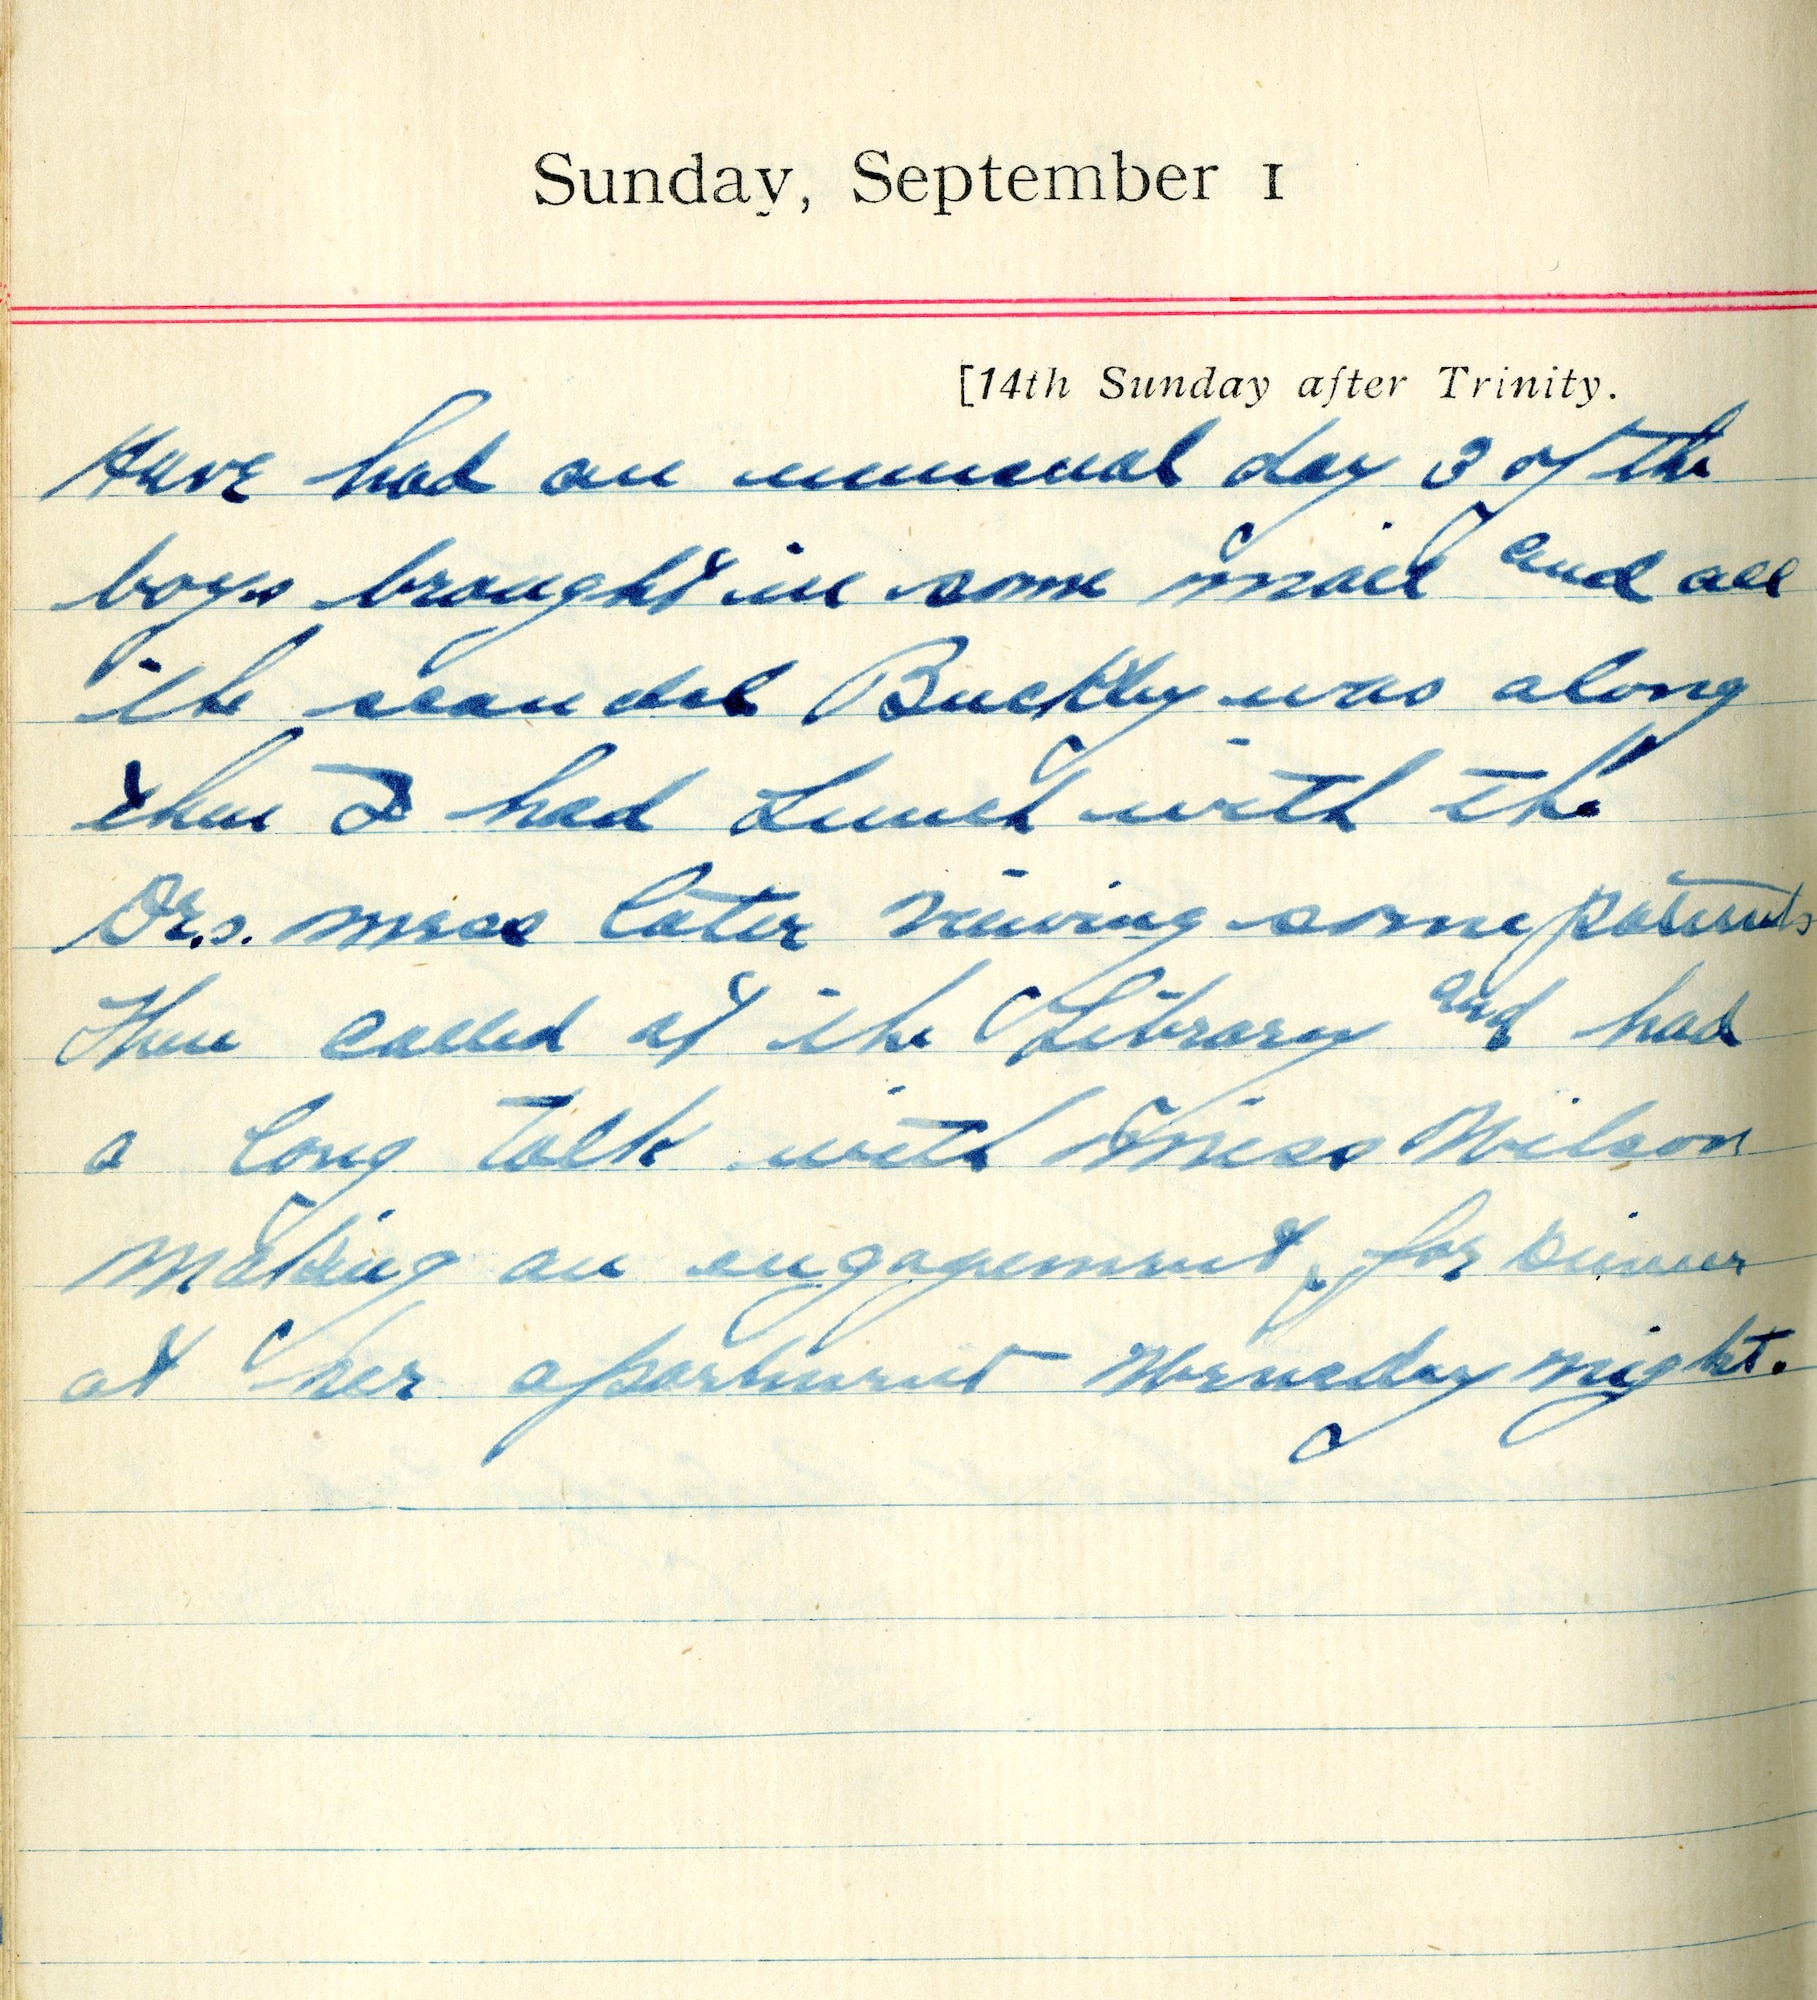 Sunday, September 1
[14th Sunday after Trinity.
Have had an unusual day 3 of the
boys brought in some mail and all
the scandel Buckley was along
then I had Lunch with the
Drs. mess later viewing some patients
Then called at the Library and had
a long talk with Miss Wilson
making an engagement for Dinner
at her apartment Wensday night.